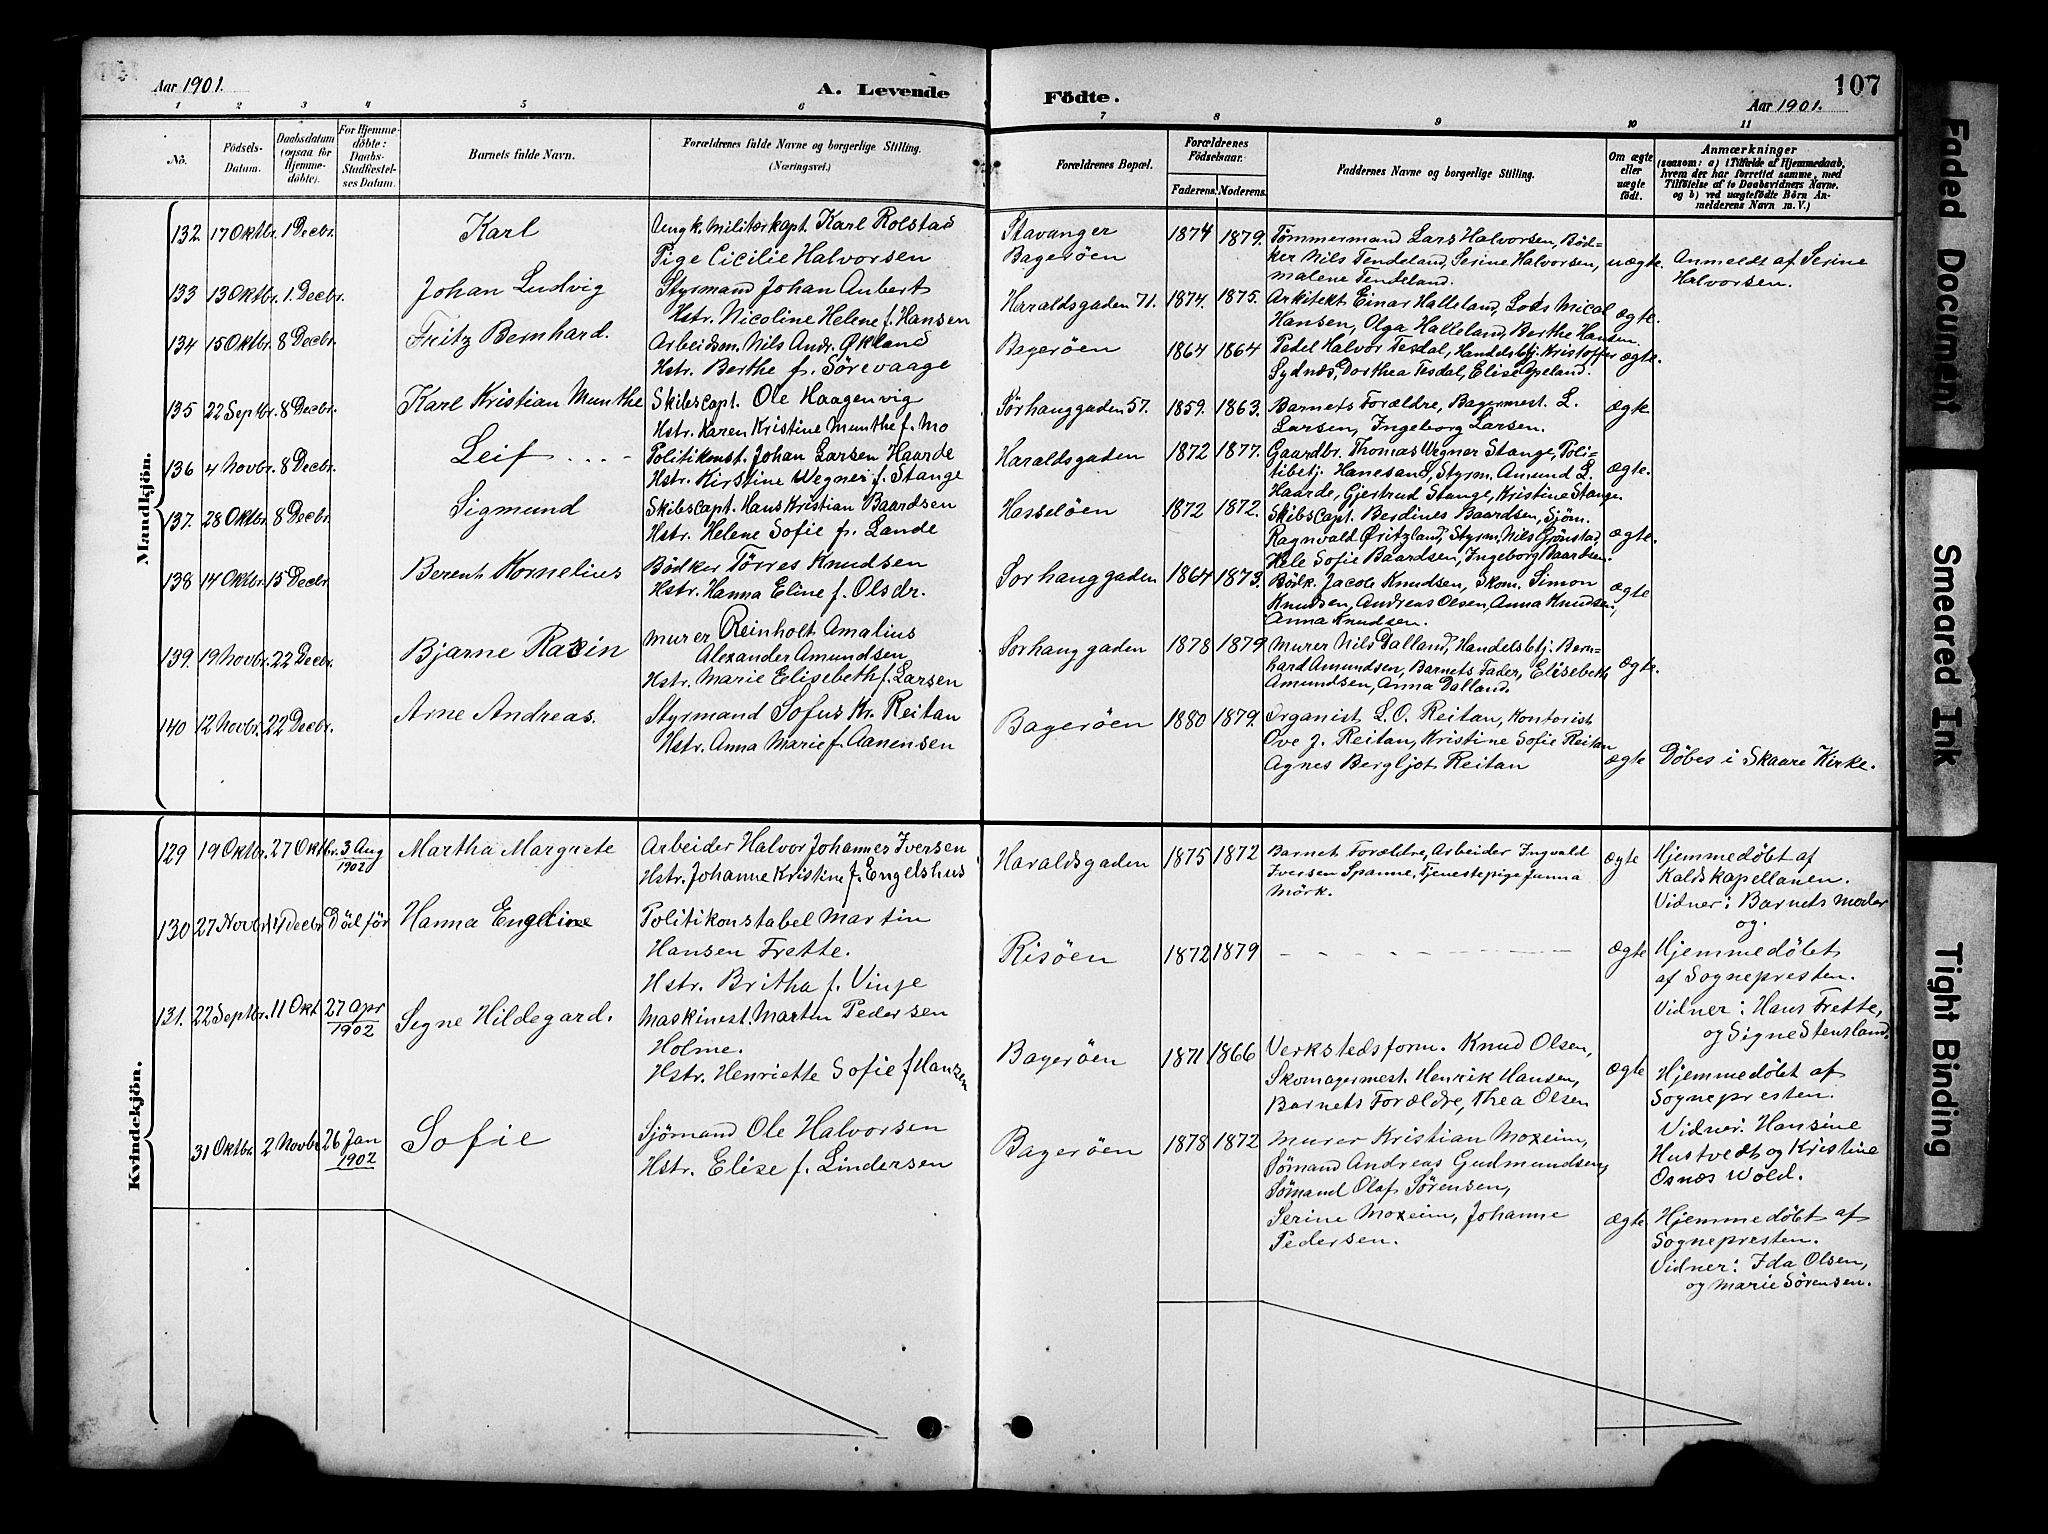 Aar 1901.
A. Levende
Födte.
Aar 1901.
107
1 2 3 4 5 6 7 8 9 10 11
No.
Födsels-
Datum.
Daabsdatum
(ogsaa for
Hjemme-
döbte).
For Hjemme-
döbte:
Daabs-
Stadfæstel-
ses Datum.
Barnets fulde Navn.
Forældrenes fulde Navne og borgerlige Stilling.
(Næringsvei.)
Forældrenes Bopæl.
Forældrenes
Födselsaar.
Faderens. Moderens.
Faddernes Navne og borgerlige Stilling.
Om ægte
eller
uægte
født.
Anmærkninger
(saasom: a) i Tilfælde af Hjemmedaab,
hvem der har forrettet samme, med
Tilföielse af to Daabsvidners Navne,
og b) ved uægtefödte Börn An-
melderens Navn m. V.)
Mandkjön.
132 17 Oktbr. 1 Decbr. Karl
Ungk. Militærkapt. Karl Rolstad
Pige Cicilie Halvorsen
Stavanger
Bagerøen
1874 1879.
Tömmermand Lars Halvorsen, Bød=
ker Nils Tendeland, Serine Halvorsen,
Malene Tendeland.
uægte.
Anmeldt af Serine
Halvorsen.
133 13 Oktbr. 1. Decbr. Johan Ludvig
Styrmand Johan Aubert
Hstr. Nicoline Helene f. Hansen
Haraldsgaden 71. 1874. 1875.
Arkitekt Einar Halleland, Lods Mical
Hansen, Olga Halleland, Berthe Hansen.
ægte.
134 15 Oktbr. 8 Decbr. Fritz Bernhard.
Arbeidsm. Nils Andr. Økland
Hstr. Berthe f. Sörevaage
Bagerøen 1864 1864
Pedel Halvor Tesdal, Handelsbtj. Kristoffer
Sydnæs, Dorthea Tesdal, Elise Apeland.
ægte.
135 22 Septbr. 8 Decbr. Karl Kristian Munthe
Skibscapt. Ole Haagenvig
Hstr. Karen Kristine Munthe f. Mo
Sørhauggaden 57. 1859. 1863.
Barnets Forældre, Bagermest. L.
Larsen, Ingeborg Larsen.
ægte.
136 4 Novbr. 8 Decbr. Leif
Politikonst. Johan Larsen Haarde
Hstr. Kirstine Wegner f. Stange
Haraldsgaden 1872 1877.
Gaardbr. Thomas Wegner Stange, Poli-
tibetj. Hanesand, Styrm. Amund L.
Haarde, Gjertrud Stange, Kristine Stange.
ægte.
137. 28 Oktbr. 8 Decbr. Sigmund
Skibscapt. Hans Kristian Baardsen
Hstr. Helene Sofie f. Lande
Hasseløen 1872 1872.
Skibscapt. Berdines Baardsen, Sjøm.
Ragnvald Øritzland, Styrm. Nils Grønstad,
Hele Sofie Baardsen, Ingeborg Baardsen.
ægte.
138 14 Oktbr. 15 Decbr. Berent Kornelius
Bödker Törres Knudsen
Hstr. Hanna Eline f. Olsdr.
Sørhauggaden 1864 1873.
Bødk. Jacob Knudsen, Skom. Simon
Knudsen, Andreas Olsen, Anna Knudsen,
Anna Knudsen.
ægte
139. 19 Novbr. 22 Decbr. Bjarne
Murer Reinholt Amalius
Alexander Amundsen
Hstr. Marie Elisebeth f. Larsen
Sørhauggaden 1878 1879
Murer Nils Dalland, Handelsbtj. Bern-
hard Amundsen, Barnets Fader, Elisebeth
Amundsen, Anna Dalland.
ægte.
140 12 Novbr. 22 Decbr. Arne Andreas.
Styrmand Sofus Kr. Reitan
Hstr. Anna Marie f. Aanensen
Bagerøen 1880 1879.
Organist L. O. Reitan, Kontorist
Ove J. Reitan, Kristine Sofie Reitan
Agnes Bergljot Reitan
ægte
Döbes i Skaare Kirke.
Kvindekjön.
129 19 Oktbr. 27 Oktbr. 3 Aug 1902 Martha Margrete
Arbeider Halvor Johannes Iversen
Hstr. Johanne Kristine f. Engelshus
Haraldsgaden 1875 1872
Barnets Forældre, Arbeider Ingvald
Iversen Spanne, Tjenestepige Gunna
Mörk.
ægte
Hjemmedøbt af
Kaldskapellanen.
Vidner: Barnets Moder
og.
130 27 Novbr. 4 Decbr. Död för Hanna Engeline
Politikonstabel Martin
Hansen Frette.
Hstr. Britha f. Vinje
Risöen 1872 1879
ægte
Hjemmedøbt
af Sognepresten.
Vidner: Hans Frette,
og Signe Stensland.
131. 22 Septbr. 11 Okt. 27 Apr 1902 Signe Hildegard.
Maskinest. Martin Pedersen
Holme.
Hstr. Henriette Sofie f. Hansen
Bagerøen 1871 1866
Verkstedsform. Knud Olsen,
Skomagermest. Henrik Hansen,
Barnets Forældre, Thea Olsen
ægte
Hjemmedøbt af
Sognepresten.
Vidner: Hansine
Hustvedt og Kristine
Osnæs Wold.
31 Oktbr. 2 Novbr 26 Jan 1902 Sofie
Sjömand Ole Halvorsen
Hstr. Elise f. Lindersen
Bagerøen 1878 1872
Murer Kristian Moxeim,
Sömand Andreas Gudmundsen,
Sömand Olaf Sörensen,
Serine Moxeim, Johanne
Pedersen.
ægte
Hjemmedøbt af
Sognepresten.
Vidner: Ida Olsen,
og Marie Sörensen.
Faded Document
Smeared Ink
Tight Binding